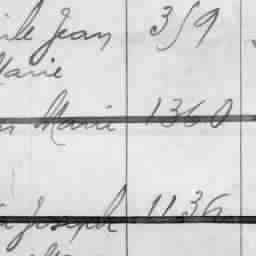 Jean 359
Marie
Marie 1360
Joseph 1136